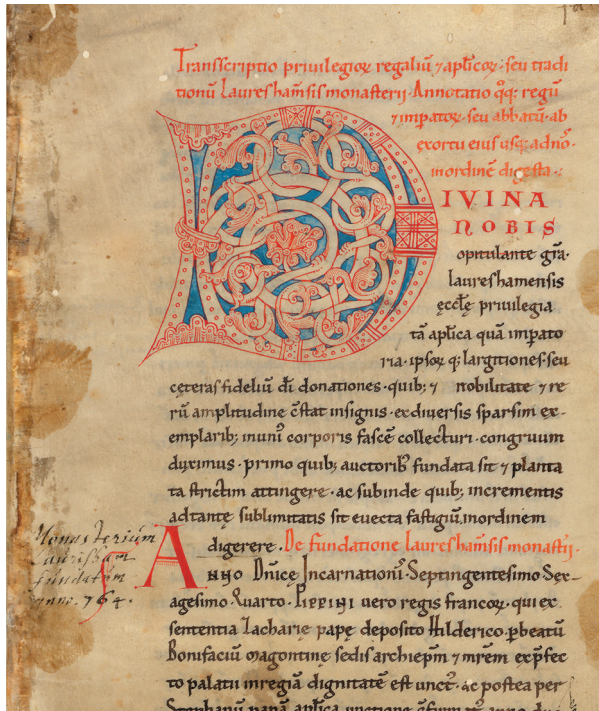 Transscriptio privilegioꝝ regaliū ⁊ aplicoꝝ · seu tradi
tionū Laureshāsis monasterij · Annotatio qͦqꝫ regū
⁊ impatoꝝ · seu abbatū · ab
exortu eius usqꝫ ad nō
in ordinē digesta ·
DIVINA
NOBIS
opitulante grā ·
laureshamensis
ęccłę privilegia
tā aplica quā impato
ria · ipsoꝝ qꝫ largitiones · seu
cęteras fideliū dī donationes · quibꝫ ⁊ nobilitate ⁊ re
rū amplitudine cͦstat insignis · ex diversis sparsim ex-
emplaribꝫ in unī corporis fascē collecturi · congruum
duximus · primo quibꝫ auctoribꝰ fundata sit ⁊ planta
ta strictim attingere · ac subinde quibꝫ incrementis
ad tantę sublimitatis sit evecta fastigiū, in ordinem
digerere · De fundatione laureshāsis monastii ·
ANNO Dnicę Incarnationis · Septingentesimo Sex-
agesimo · Quarto · PIPPINI vero regis francoꝝ · qui ex
sententia Zacharię papę deposito Hilderico · ꝑ beatū
Bonifaciū magontinę sedis archiepm ⁊ mrēm ex pfec
to palatii in regiā dignitatē est unctꝰ · ac postea per
Stephanū papā aplica unctione
Monasterium
Laurissam
fundatum
anno. 764.